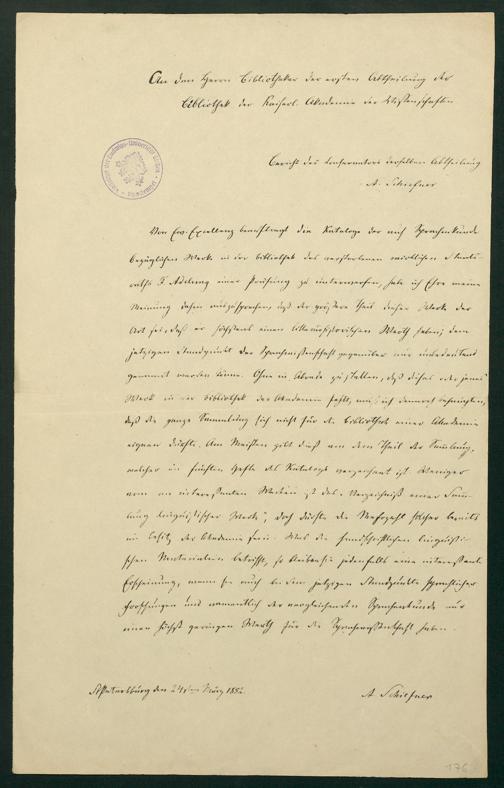 An den Herrn Bibliothekar der ersten Abtheilung der
Bibliothek der Kaiserl. Akademie der Wissenschaften
Bericht des Conservators derselben Abtheilung
A. Schiefner
Von Ew. Excellenz beauftragt die Kataloge der auf Sprachenkunde
bezüglichen Werke in der Bibliothek des verstorbenen wirklichen Staats-
raths F. Adelung einer Prüfung zu unterwerfen, habe ich Ihre meine
Meinung dahin auszusprechen, daß der größere Theil dieser Werke der
Art sei, daß er höchstens einen litterärhistorischen Werth habe; dem
jetzigen Standpunkt der Sprachwissenschaft gegenüber nur unbedeutend
genannt werden könne. Ohne in Abrede zu stellen, daß dieses oder jenes
Werk in der Bibliothek der Akademie fehlt, muß ich dennoch
daß die ganze Sammlung sich nicht für die Bibliothek einer Akademie
eignen dürfte. Am Meisten gilt dieß von dem Theil der Sammlung,
welcher im Hefte des Katalogs verzeichnet ist. Weniger
arm an interessanten Werken ist das „Verzeichniß einer Samm-
lung linguistischer Werke", doch dürfte die Mehrzahl solcher bereits
im Besitz der Akademie sein. Was die handschriftlichen linguisti-
schen Materialien betrifft, so bleiben sie jedenfalls eine interessante
Erscheinung, wenn sie auch bei dem jetzigen Standpunkte sprachlicher
Forschungen und namentlich der vergleichenden Sprachenkunde nur
einen höchst geringen Werth für die Sprachwissenschaft haben.
St. Petersburg den 24sten März 1852.
A. Schiefner
176